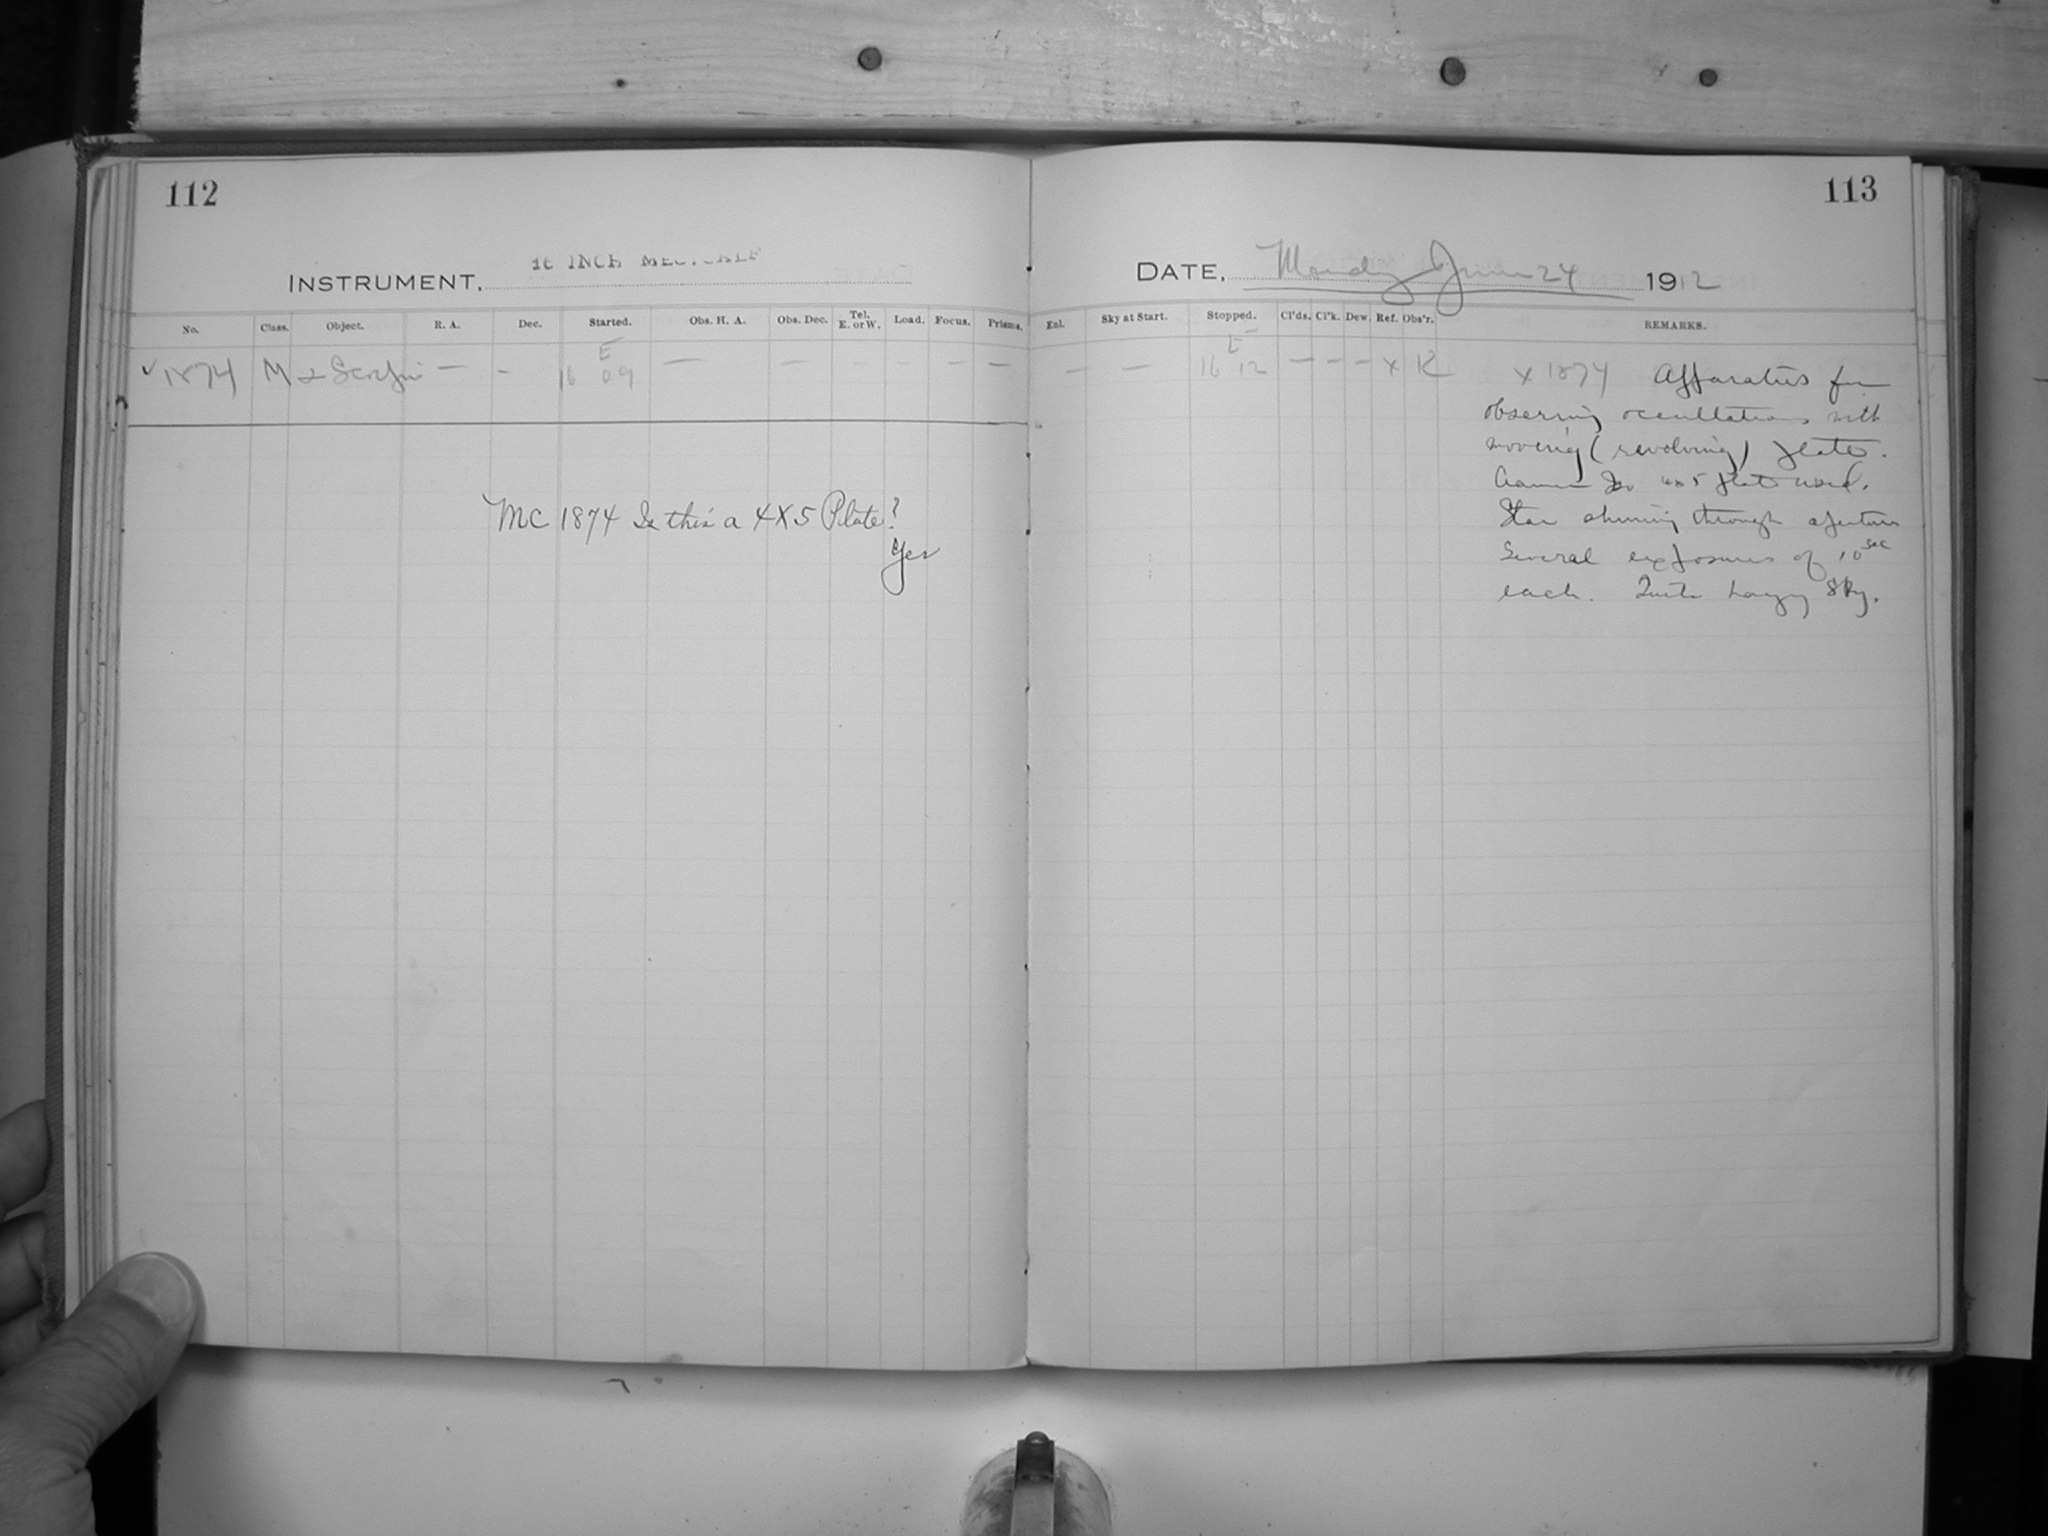 112
INSTRUMENT, 16 INCH METCALF
No. Class. Object. R. A. Dec. Started. Obs. H. A. Obs. Dec. Tel. E. or W. Load. Focus. Prisms.
E
✓ 1874 M α Scorpii — - 16 09 — — — — — —
MC 1874 Is this a 4X5 Plate?
Yes
113
DATE, Monday June 24 1912
Enl. Sky at Start. Stopped. Cl'ds. Cl'k. Dew. Ref. Obs'r. REMARKS.
E
— — 16 12 — — — x R x 1874 Apparatus for
observing occultations with
moving (revolving) plate.
4x5 plate used.
Star shining through aperture
Several exposures of 10 sec
each. Quite hazy sky.